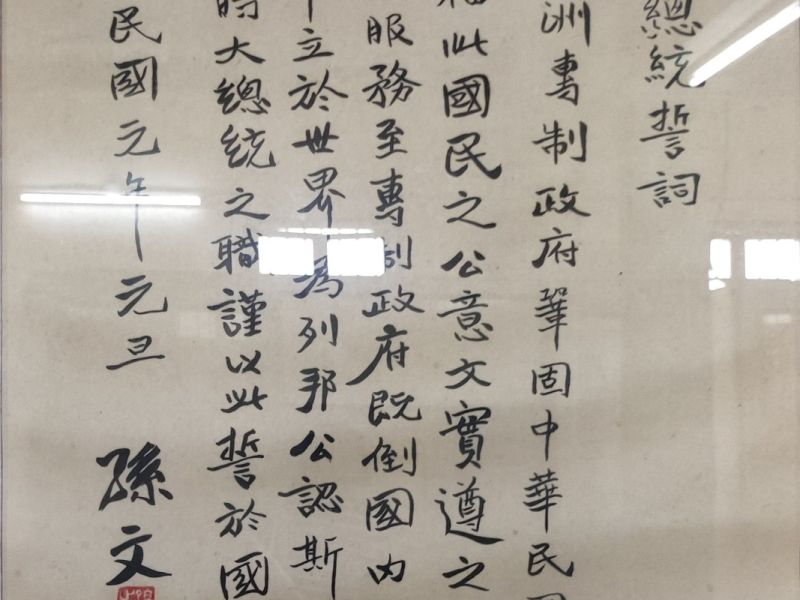 總統誓詞
洲專制政府鞏固中華民國
此國民之公意文實遵之
服務至專制政府既倒國內
立於世界為列邦公認斯
時大總統之職謹以此誓於國
民國元年元旦
孫文